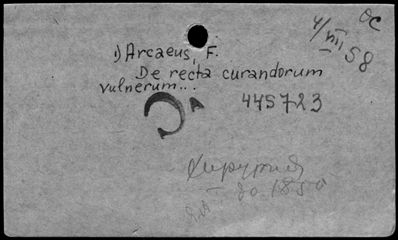 4/VIII 58
ОС
1) Arcaeus, F.
De recta curandorum
vulnerum...
445723
Хирургия
до 1850